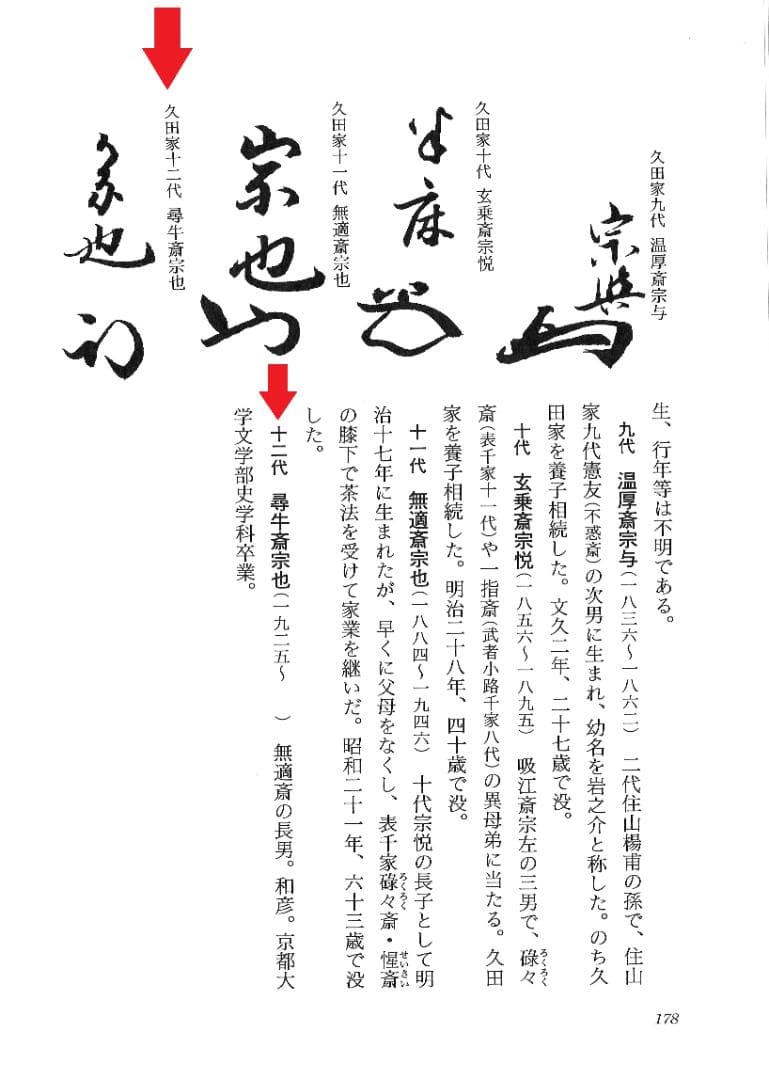 久田家九代 温厚斎宗与
宗與
久田家十代 玄乗斎宗悦
半床
久田家十一代 無適斎宗也
宗也
久田家十二代 尋牛斎宗也
宗也
生、行年等は不明である。
九代 温厚斎宗与(一八三六〜一八六二) 二代住山楊甫の孫で、住山
家九代憲友(不惑斎)の次男に生まれ、幼名を岩之介と称した。のち久
田家を養子相続した。文久二年、二十七歳で没。
十代 玄乗斎宗悦(一八五六〜一八九五) 吸江斎宗左の三男で、碌々
ろくろく
斎(表千家十一代)や一指斎(武者小路千家八代)の異母弟に当たる。久田
家を養子相続した。明治二十八年、四十歳で没。
十一代 無適斎宗也(一八八四〜一九四六) 十代宗悦の長子として明
治十七年に生まれたが、早くに父母をなくし、表千家碌々斎・惺斎
ろくろく せいさい
の膝下で茶法を受けて家業を継いだ。昭和二十一年、六十三歳で没
した。
十二代 尋牛斎宗也(一九二五〜 ) 無適斎の長男。和彦。京都大
学文学部史学科卒業。
178